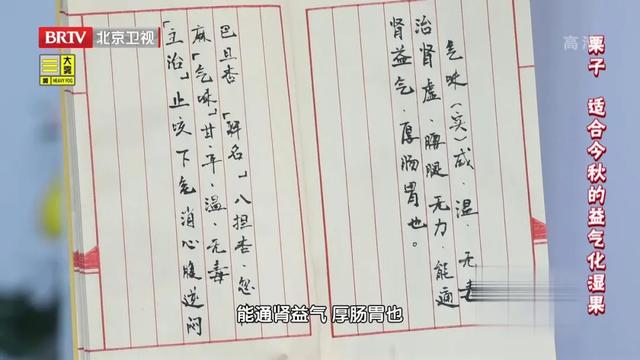 BRTV 北京卫视
大雾
黄
HEAVY FOG
高清
栗子 适合今秋的益气化湿果
气味（实）咸．温．无毒
治肾虚．腰腿无力．能通
肾益气．厚肠胃也。
巴旦杏「释名」八担杏．忽
麻「气味」甘．平．温．无毒
「主治」止咳下气消心腹逆闷
能通肾益气 厚肠胃也